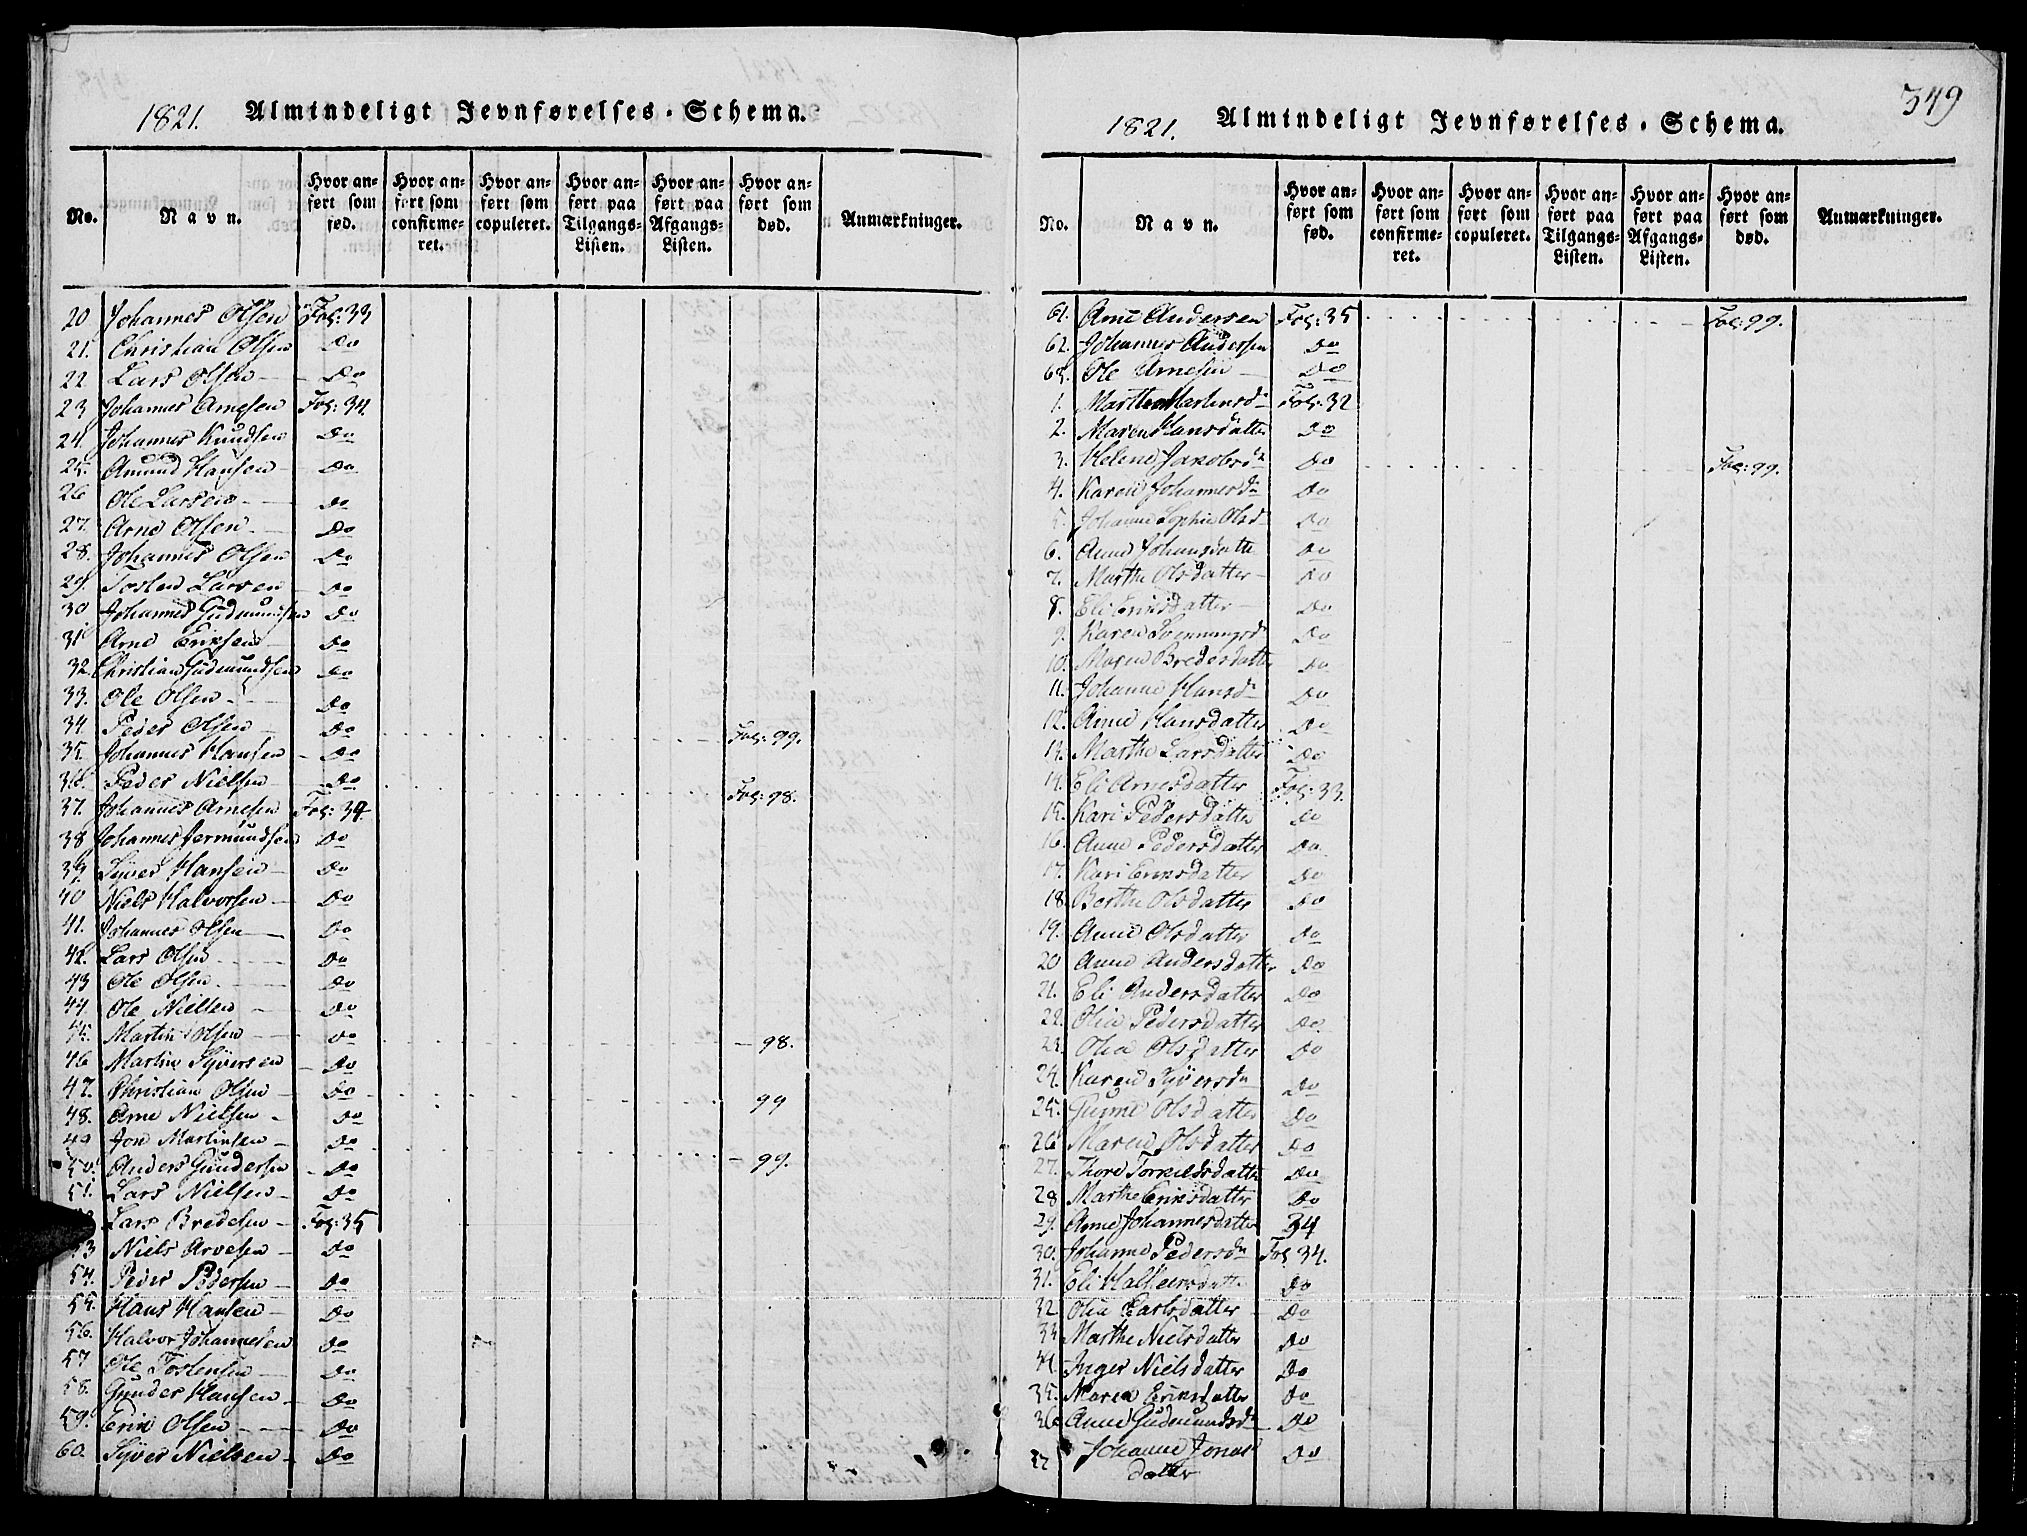 1821. Almindeligt Jevnførelses-Schema.
No. Navn. Hvor anført som fød. Hvor anført som confirmeret. Hvor anført som copuleret. Hvor anført paa Tilgangs-Listen. Hvor anført paa Afgangs-Listen. Hvor anført som død. Anmærkninger.
20 Johannes Olsen Fol: 33
21. Christian Olsen Do
22 Lars Olsen Do
23 Johannes Arnesen Fol: 34
24. Johannes Knudsen Do
25. Amund Hansen Do
26 Ole Larsen Do
27. Arne Olsen Do
28. Johannes Olsen Do
29. Tosten Larsen Do
30 Johannes Gudmundsen Do
31 Arne Eriksen Do
32. Christian Gudmundsen Do
33. Ole Olsen Do
34. Peder Olsen Do Fol: 99.
35. Johannes Hansen Do
36. Peder Nielsen Do Fol: 98.
37. Johannes Arnesen Fol: 34
38 Johannes Jermundsen Do
39 Syver Hansen Do
40 Niels Halvorsen Do
41. Johannes Olsen Do
42. Lars Olsen Do
43 Ole Olsen Do
44. Ole Nielsen Do
45. Martin Olsen Do 98.
46 Martin Syversen Do
47. Christian Olsen Do 99
48. Arne Nielsen Do
49 Jon Martinsen Do
50. Anders Gundersen Do 99.
51. Lars Nielsen Do
Lars Bredesen Fol: 35
53 Niels Arvesen Do
54. Peder Pedersen Do
55. Hans Hansen Do
56. Halvor Johannesen Do
57 Ole Tostensen Do
58. Gunder Hansen Do
59. Erik Olsen Do
60. Syver Nielsen Do
349
1821. Almindeligt Jevnførelses-Schema.
No. Navn. Hvor anført som fød. Hvor anført som confirmeret. Hvor anført som copuleret. Hvor anført paa Tilgangs-Listen. Hvor anført paa Afgangs-Listen. Hvor anført som død. Anmærkninger.
61. Arne Andersen Fol: 35 Fol: 99.
62. Johannes Andersen Do
63. Ole Arnesen Do
1. Marthe Martinsdr Fol: 32
2. Maren Hansdatter Do
3. Helene Jakobsdr Do Fol: 99.
4. Karen Johannesdr Do
5. Johanne Sophie Olsd Do
6. Anne Johansdatter Do
7. Marthe Olsdatter Do
8. Eli Eriksdatter Do
9. Karen Svenningsdr Do
10. Maren Bredesdatter Do
11. Johanne Hansdr Do
12. Anne Hansdatter Do
13. Marthe Larsdatter Do
14. Eli Arnesdatter Fol: 33.
15. Kari Pedersdatter Do
16. Anne Pedersdatter Do
17. Kari Eriksdatter Do
18. Berthe Olsdatter Do
19. Anne Olsdatter Do
20 Anne Andersdatter Do
21. Eli Andersdatter Do
22. Olia Pedersdatter Do
23. Olia Olsdatter Do
24. Karen Syversdr Do
25. Gunne Olsdatter Do
26 Maren Olsdatter Do
27. Thore Torkildsdatter Do
28 Marthe Eriksdatter Do
29. Anne Johannesdatter 34
30. Johanne Pedersdr Fol 34.
31. Eli Do
32 Olia Carlsdatter Do
33 Marthe Nielsdatter Do
34. Inger Nielsdatter Do
35. Maren Eriksdatter Do
36 Anne Gudmundsdr Do
37 Johanne Jonasdatter Do